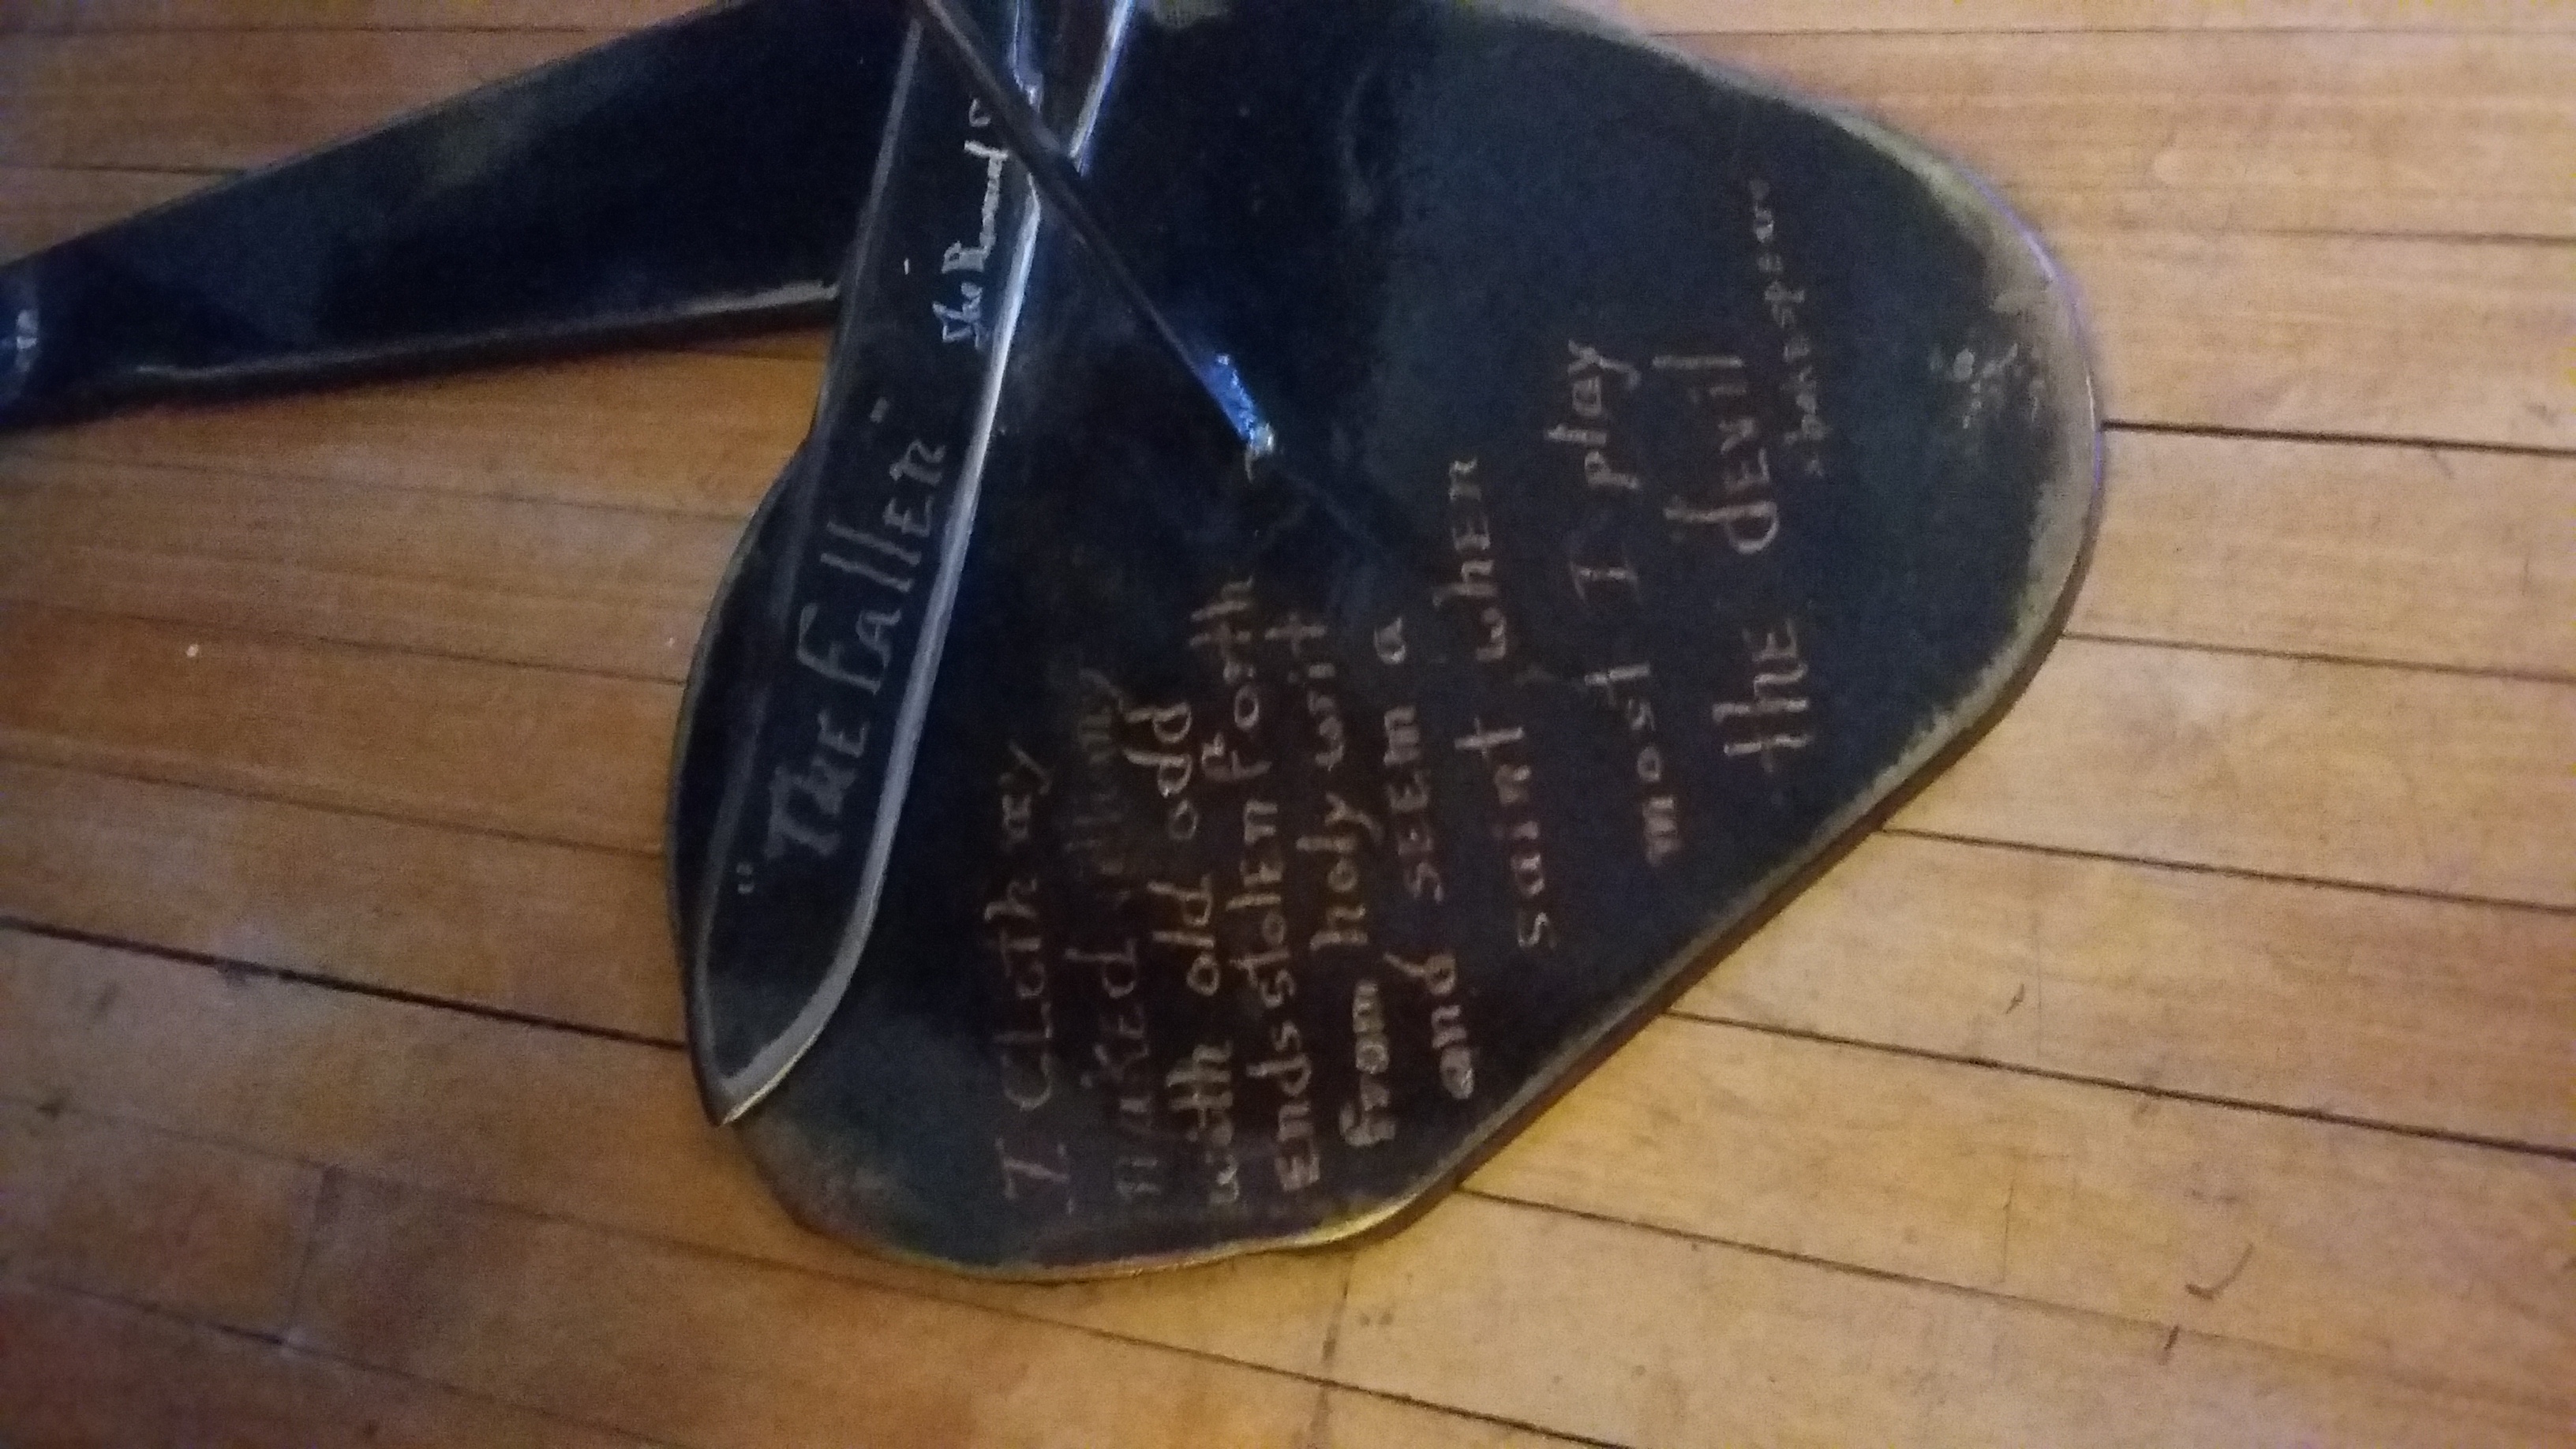 "The Fallen"
I Cloth my
naked villany
with old odd
Ends stolen forth
from holy writ
and seem a
saint when
most I play
the devil
shakespeare